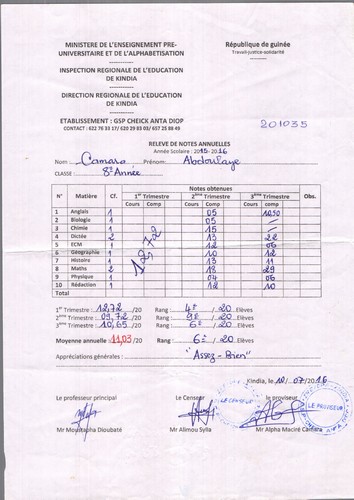 MINISTERE DE L'ENSEIGNEMENT PRE-
UNIVERSITAIRE ET DE L'ALPHABETISATION
------------
INSPECTION REGIONALE DE L'EDUCATION
DE KINDIA
------------
DIRECTION REGIONALE DE L'EDUCATION
DE KINDIA
------------
ETABLISSEMENT : GSP CHEICK ANTA DIOP
CONTACT : 622 76 33 17/ 620 29 83 03/ 657 25 88 49
République de guinée
Travail-justice-solidarité
------------
201035
RELEVE DE NOTES ANNUELLES
Année Scolaire : 2015-2016
Nom : Camara Prénom: Abdoulaye
CLASSE : 8e Année
N° Matière Cf. Notes obtenues Obs.
1er Trimestre 2ème Trimestre 3ème Trimestre
Cours comp Cours Comp Cours comp
1 Anglais 1 05 10,50
2 Biologie 1 05 /
3 Chimie 1 15 /
4 Dictée 2 13 22
5 ECM 1 12 06
6 Géographie 1 12 06
7 Histoire 1 13 11
8 Maths 2 18 29
9 Physique 1 04 06
10 Rédaction 1 12 10
Total
1er Trimestre : 12,72 /20 Rang : 4e / 20 Elèves
2ème Trimestre : 09,72 /20 Rang : 9e / 20 Elèves
3ème Trimestre : 10,65 /20 Rang : 6e / 20 Elèves
Moyenne annuelle : 11,03 /20 Rang : 6e / 20 Elèves
Appréciations générales : "Assez-Bien"
Kindia, le 10 / 07 / 2016
Le professeur principal Le Censeur Le proviseur
LE CENSEUR
LE PROVISEUR
Mr Moustapha Dioubaté Mr Alimou Sylla Mr Alpha Maciré Camara